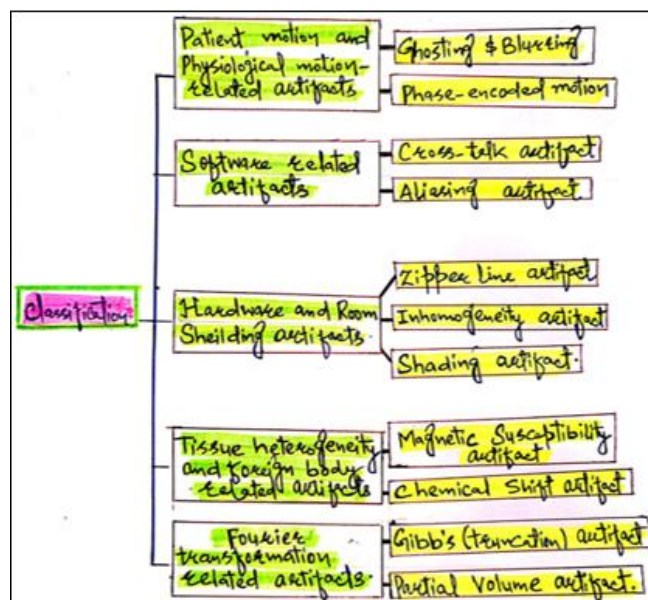 Patient motion and
Physiological motion-
related artifacts
Ghosting & Blurring
Phase-encoded motion
Software related
artifacts
Cross-talk artifact
Aliasing artifact.
Classification.
Hardware and Room
Sheilding artifacts.
Zipper line artifact
Inhomogeneity artifact
Shading artifact.
Tissue heterogeneity
and foreign body
related artifacts
Magnetic Susceptibility
artifact
Chemical Shift artifact
Fourier
transformation
related artifacts.
Gibb's (truncation) artifact
Partial Volume artifact.